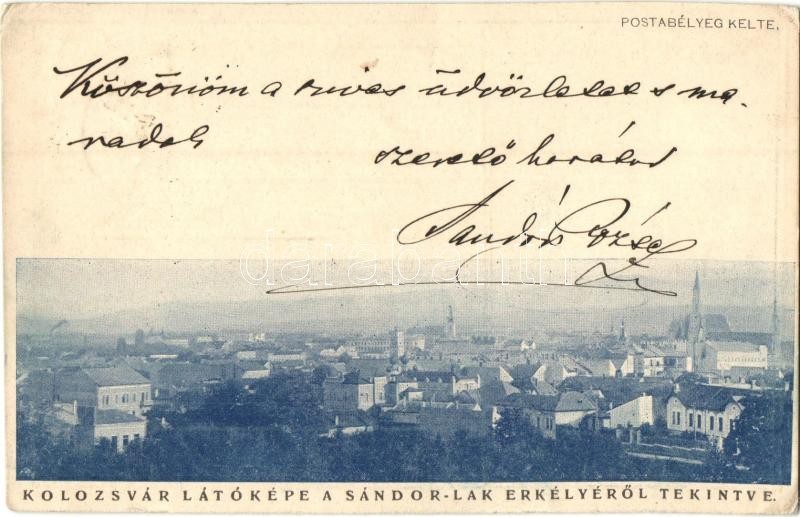 POSTABÉLYEG KELTE.
Köszönöm a szives üdvözletet s ma-
radok
szerető barátod
Sándor József
KOLOZSVÁR LÁTÓKÉPE A SÁNDOR-LAK ERKÉLYÉRŐL TEKINTVE.